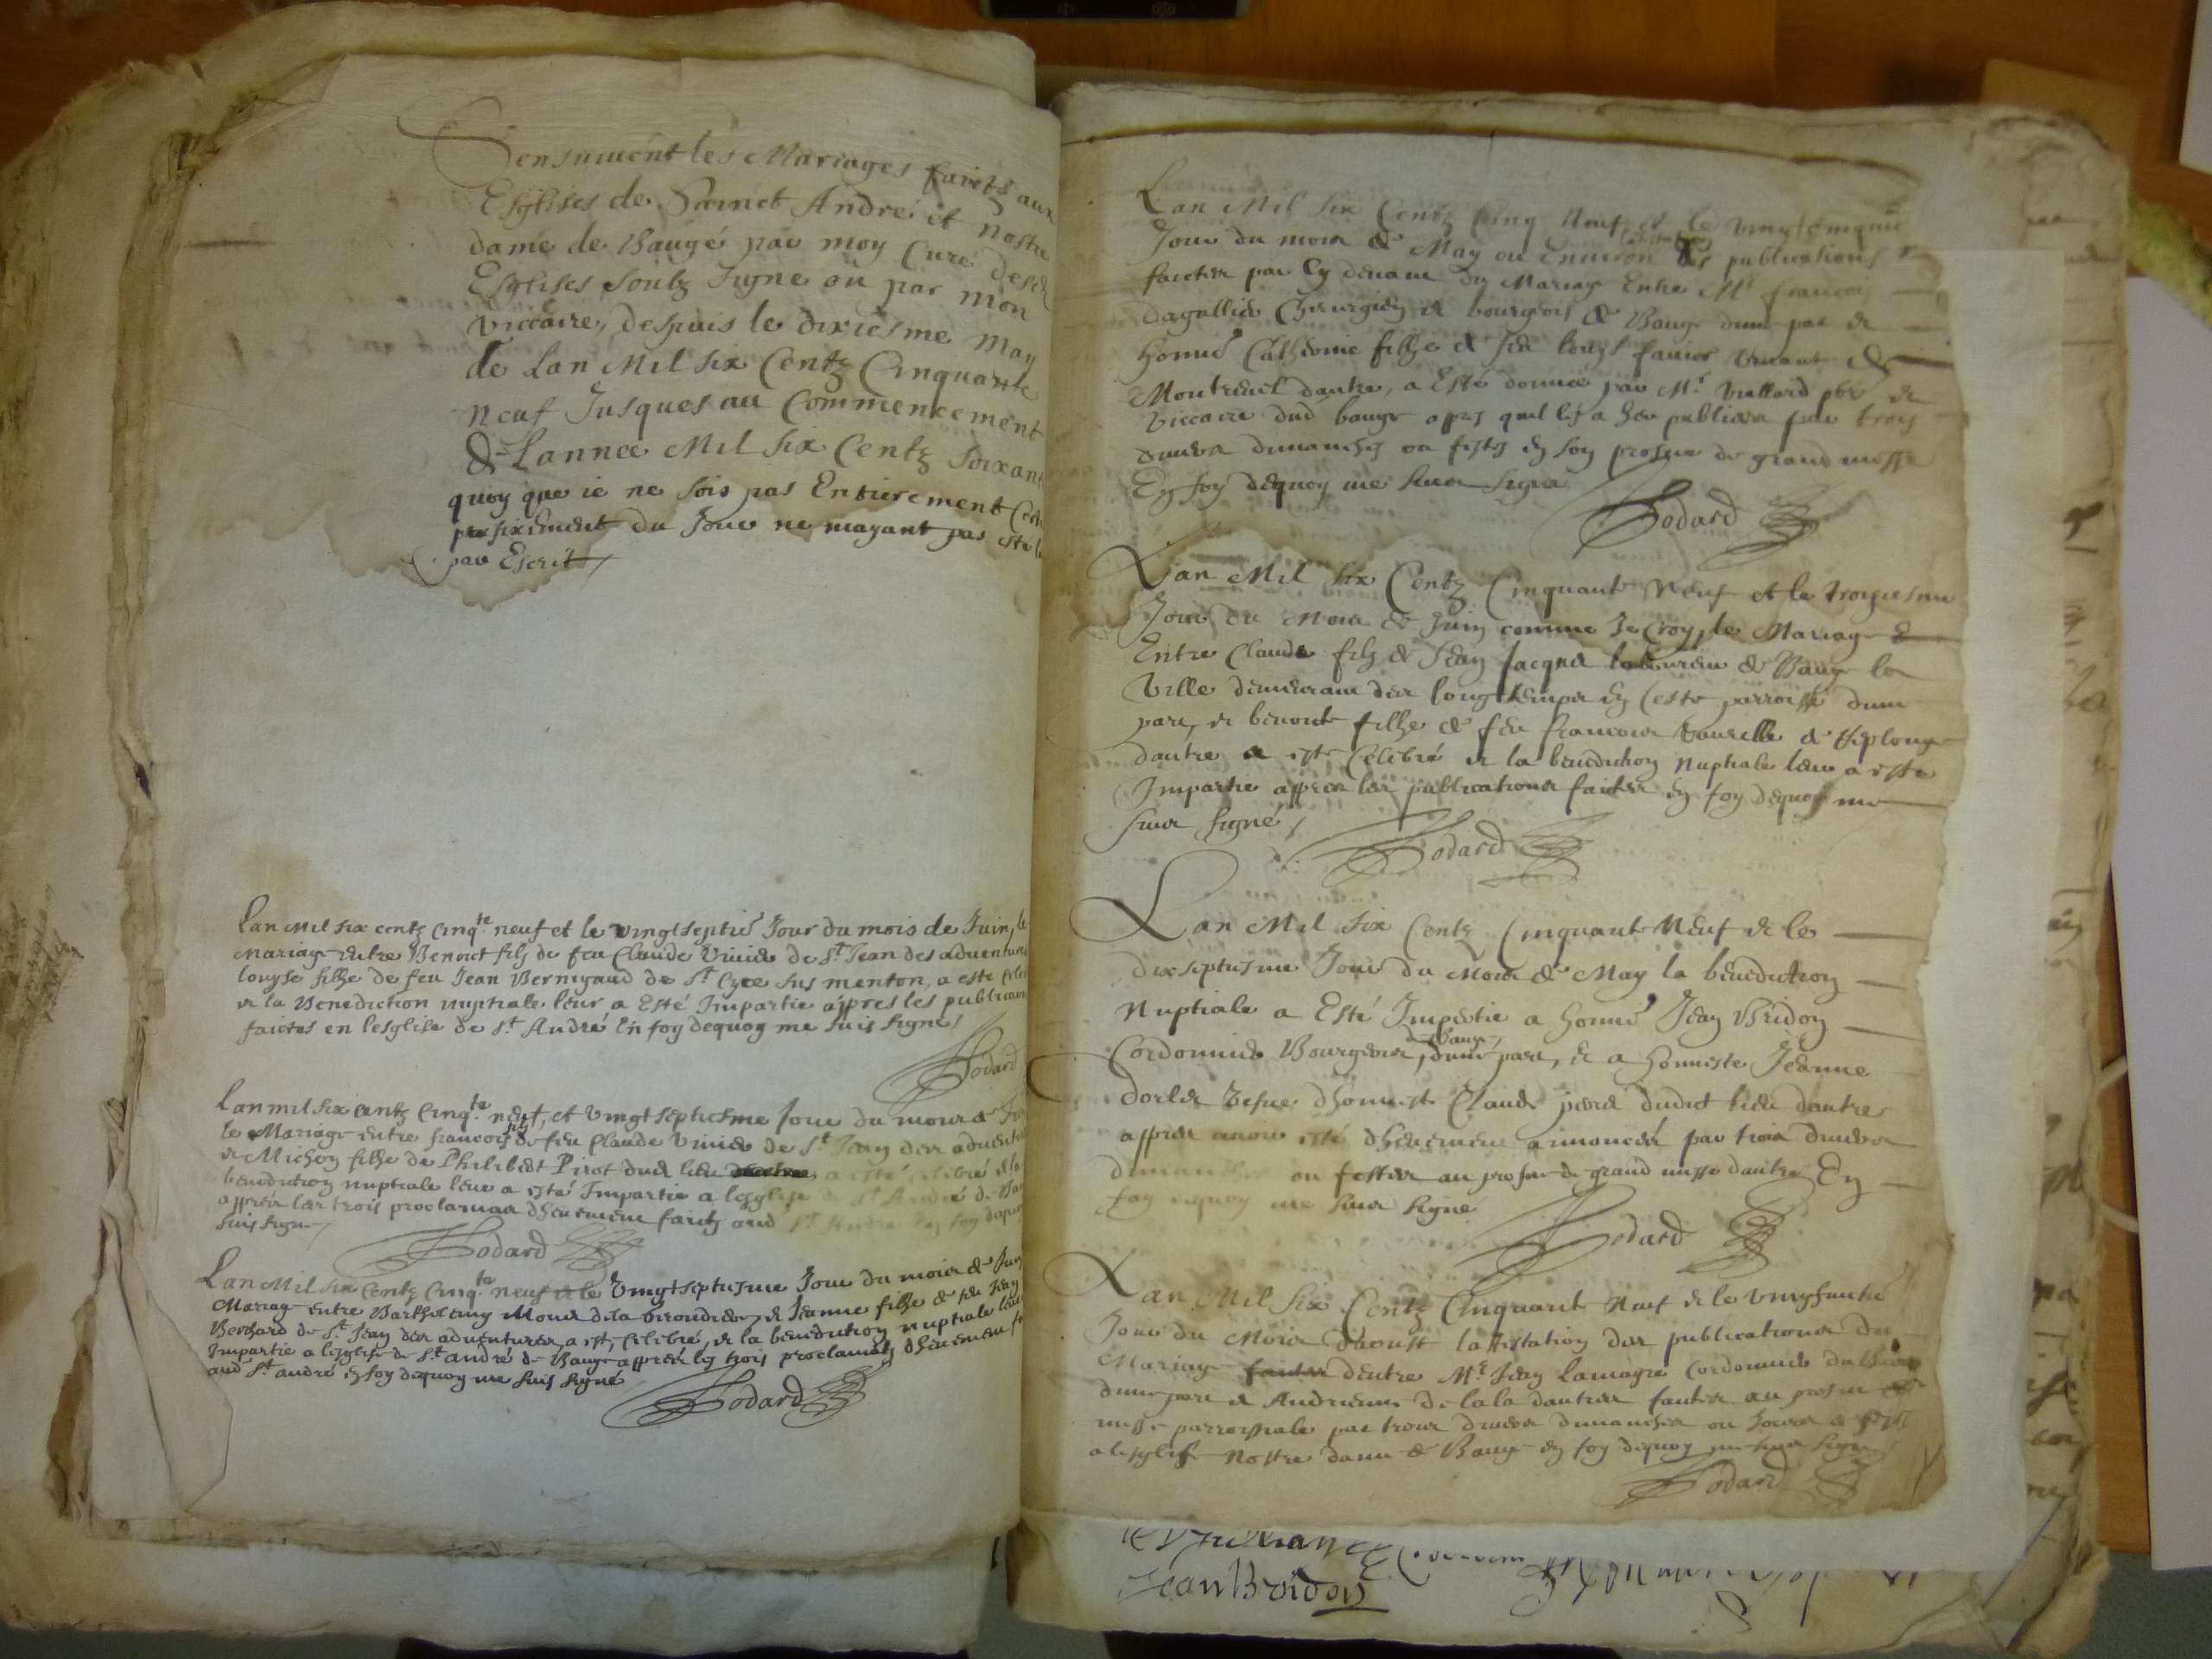 Sensuivent les Mariages faictz aux
Esglises de Sainct André et nostre
dame de Baugé par moy Curé desd
Esglises soubz signe ou par mon
viccaire, despuis le dixiesme may
de Lan Mil six Centz Cinquante
neuf Jusques au Commencement
de Lannee Mil six Centz soixant
quoy que ie ne sois pas Entierement Cert
du Jour ne mayant pas esté
par Escrit
Lan Mil six centz cinq.te neuf et le vingt septie Jour du mois de Juin, le
Mariage entre Benoict filz de feu Claude Vivier de St Jean des adventure
louyse fillie de feu Jean Bernigaud de St Cyre sus menton, a esté celeb
et la Benediction nuptiale leur a Esté Impartie appres les publicaon
faictes en lesglise de St André En foy dequoy me suis signé
Lodard
Lan mil six centz cinq.te neuf, et vingt septiesme Jour du mois de Jui
le Mariage entre francois filz de feu Claude Vivier de St Jean des adventu
et Michon fillie de Philibert Pirot dud lieu a esté celebré et la
benediction nuptiale leur a esté Impartie a lesglise de St André de Bau
appres les trois proclamaons dheuement faictz aud St André En foy dequoy
suis signe
Lodard
Lan Mil six Centz Cinq.te neuf et le Vingt septiesme Jour du mois de Juin
Mariage entre Bartholemy Monin dela et Jeanne fillie de feu Jean
Berthard de St Jean des adventures, a esté Celebré, et la benediction nuptiale leur
Impartie a lesglise de St andré de Bauge appres les trois proclamatz dheuement f
aud St andré En foy dequoy me suis signé
Lodard
Lan Mil six Centz Cinq Neuf et le vingtcinquie
Jour du mois de May ou Environ les publications
faictes par Cy devant du Mariage Entre Mr francois
dagallier Chirurgien et bourgeois de Bauge dune part et
honne Catherine fillie de feu louys favier vivant de
Montrevel dautre, a Esté donnee par Mr Viallard pbre et
viccaire dud bauge apres quil les a heu publiees par troys
divers dimanches ou festes en son prosne de grand messe
En foy dequoy me suis signé
Lodard
Lan Mil six Centz Cinquante Neuf et le troisiesme
Jour du Mois de Juin comme Je Croy, le Mariage
Entre Claude filz de Jean Jacquet laboureur de Bauge la
Ville demeurant des longtemps en Ceste parroisse dune
part, et benoite fillie de feu francois de Replonge
dautre a esté Celebré et la benediction Nuptiale leur a esté
Impartie appres les publications faictes en foy dequoy me
suis signé
Lodard
Lan Mil Six Centz Cinquante Neuf et le
dixseptiesme Jour du Mois de May la benediction
Nuptiale a Esté Impartie a honne Jean Bridon
Cordonnier Bourgeois de Bauge, dune part, et a honneste Jeanne
dorler vefve dhonneste Claude dudict lieu dautre
appres avoir esté dheuement annoncés par trois divers
dimanches ou festes au prosne de grand messe dautre En
foy dequoy me suis signé
Lodard
Lan Mil Six Centz Cinquante Neuf et le vingthuictie
Jour du Mois daoust lattestation des publications du
Mariage dentre Mr Jean Lamagre Cordonnier du
dune part et Andrienne De lala dautre faictes au prosne
messe parroissiale par trois divers dimanches ou Jours de feste
a lesglise Nostre dame de Bauge en foy dequoy me suis signe
Lodard
Jean Bridon